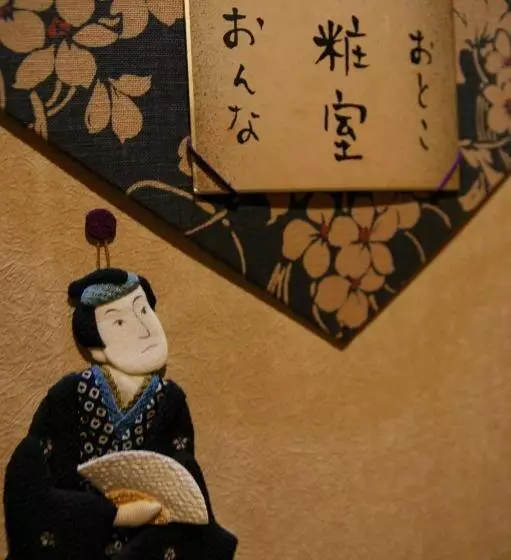 おとこ
粧室
おんな